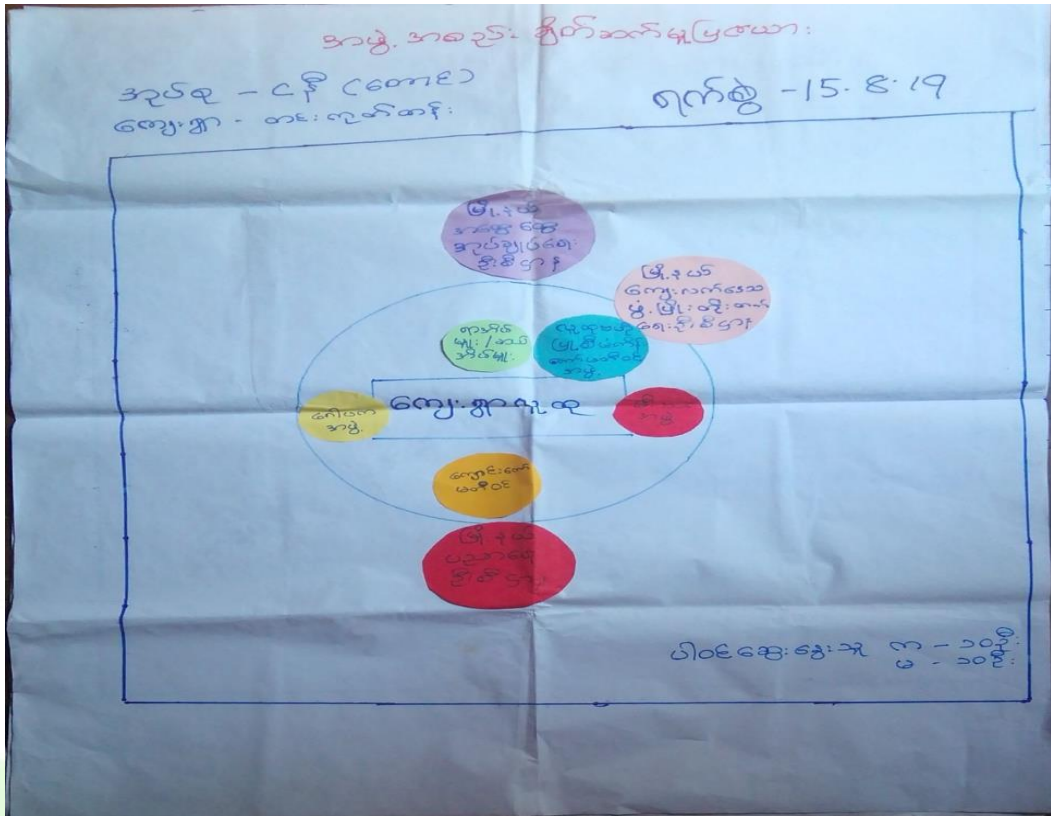 အဖွဲ့အစည်း ချိတ်ဆက်မှုပြဇယား
အုပ်စု - ငနီ (တောင်)
ကျေးရွာ - တင်းကုတ်တန်း
ရက်စွဲ - 15. 8. 19
မြို့နယ်
အထွေထွေ
အုပ်ချုပ်ရေး
ဦးစီးဌာန
မြို့နယ်
ကျေးလက်ဒေသ
ဖွံ့ဖြိုးတိုးတက်
ရေးဦးစီးဌာန
ရာအိမ်
မှူး / ဆယ်
အိမ်မှူး
လူထုဗဟိုပြု
စီမံကိန်း
ကော်မတီဝင်
အဖွဲ့
ဂေါပက
အဖွဲ့
ကျေးရွာလူထု
အဖွဲ့
ကျောင်းကော်
မတီဝင်
မြို့နယ်
ပညာရေး
ဦးစီးဌာန
ပါဝင်ဆွေးနွေးသူ ကျ - ၁၀ဦး
မ - ၁၀ဦး